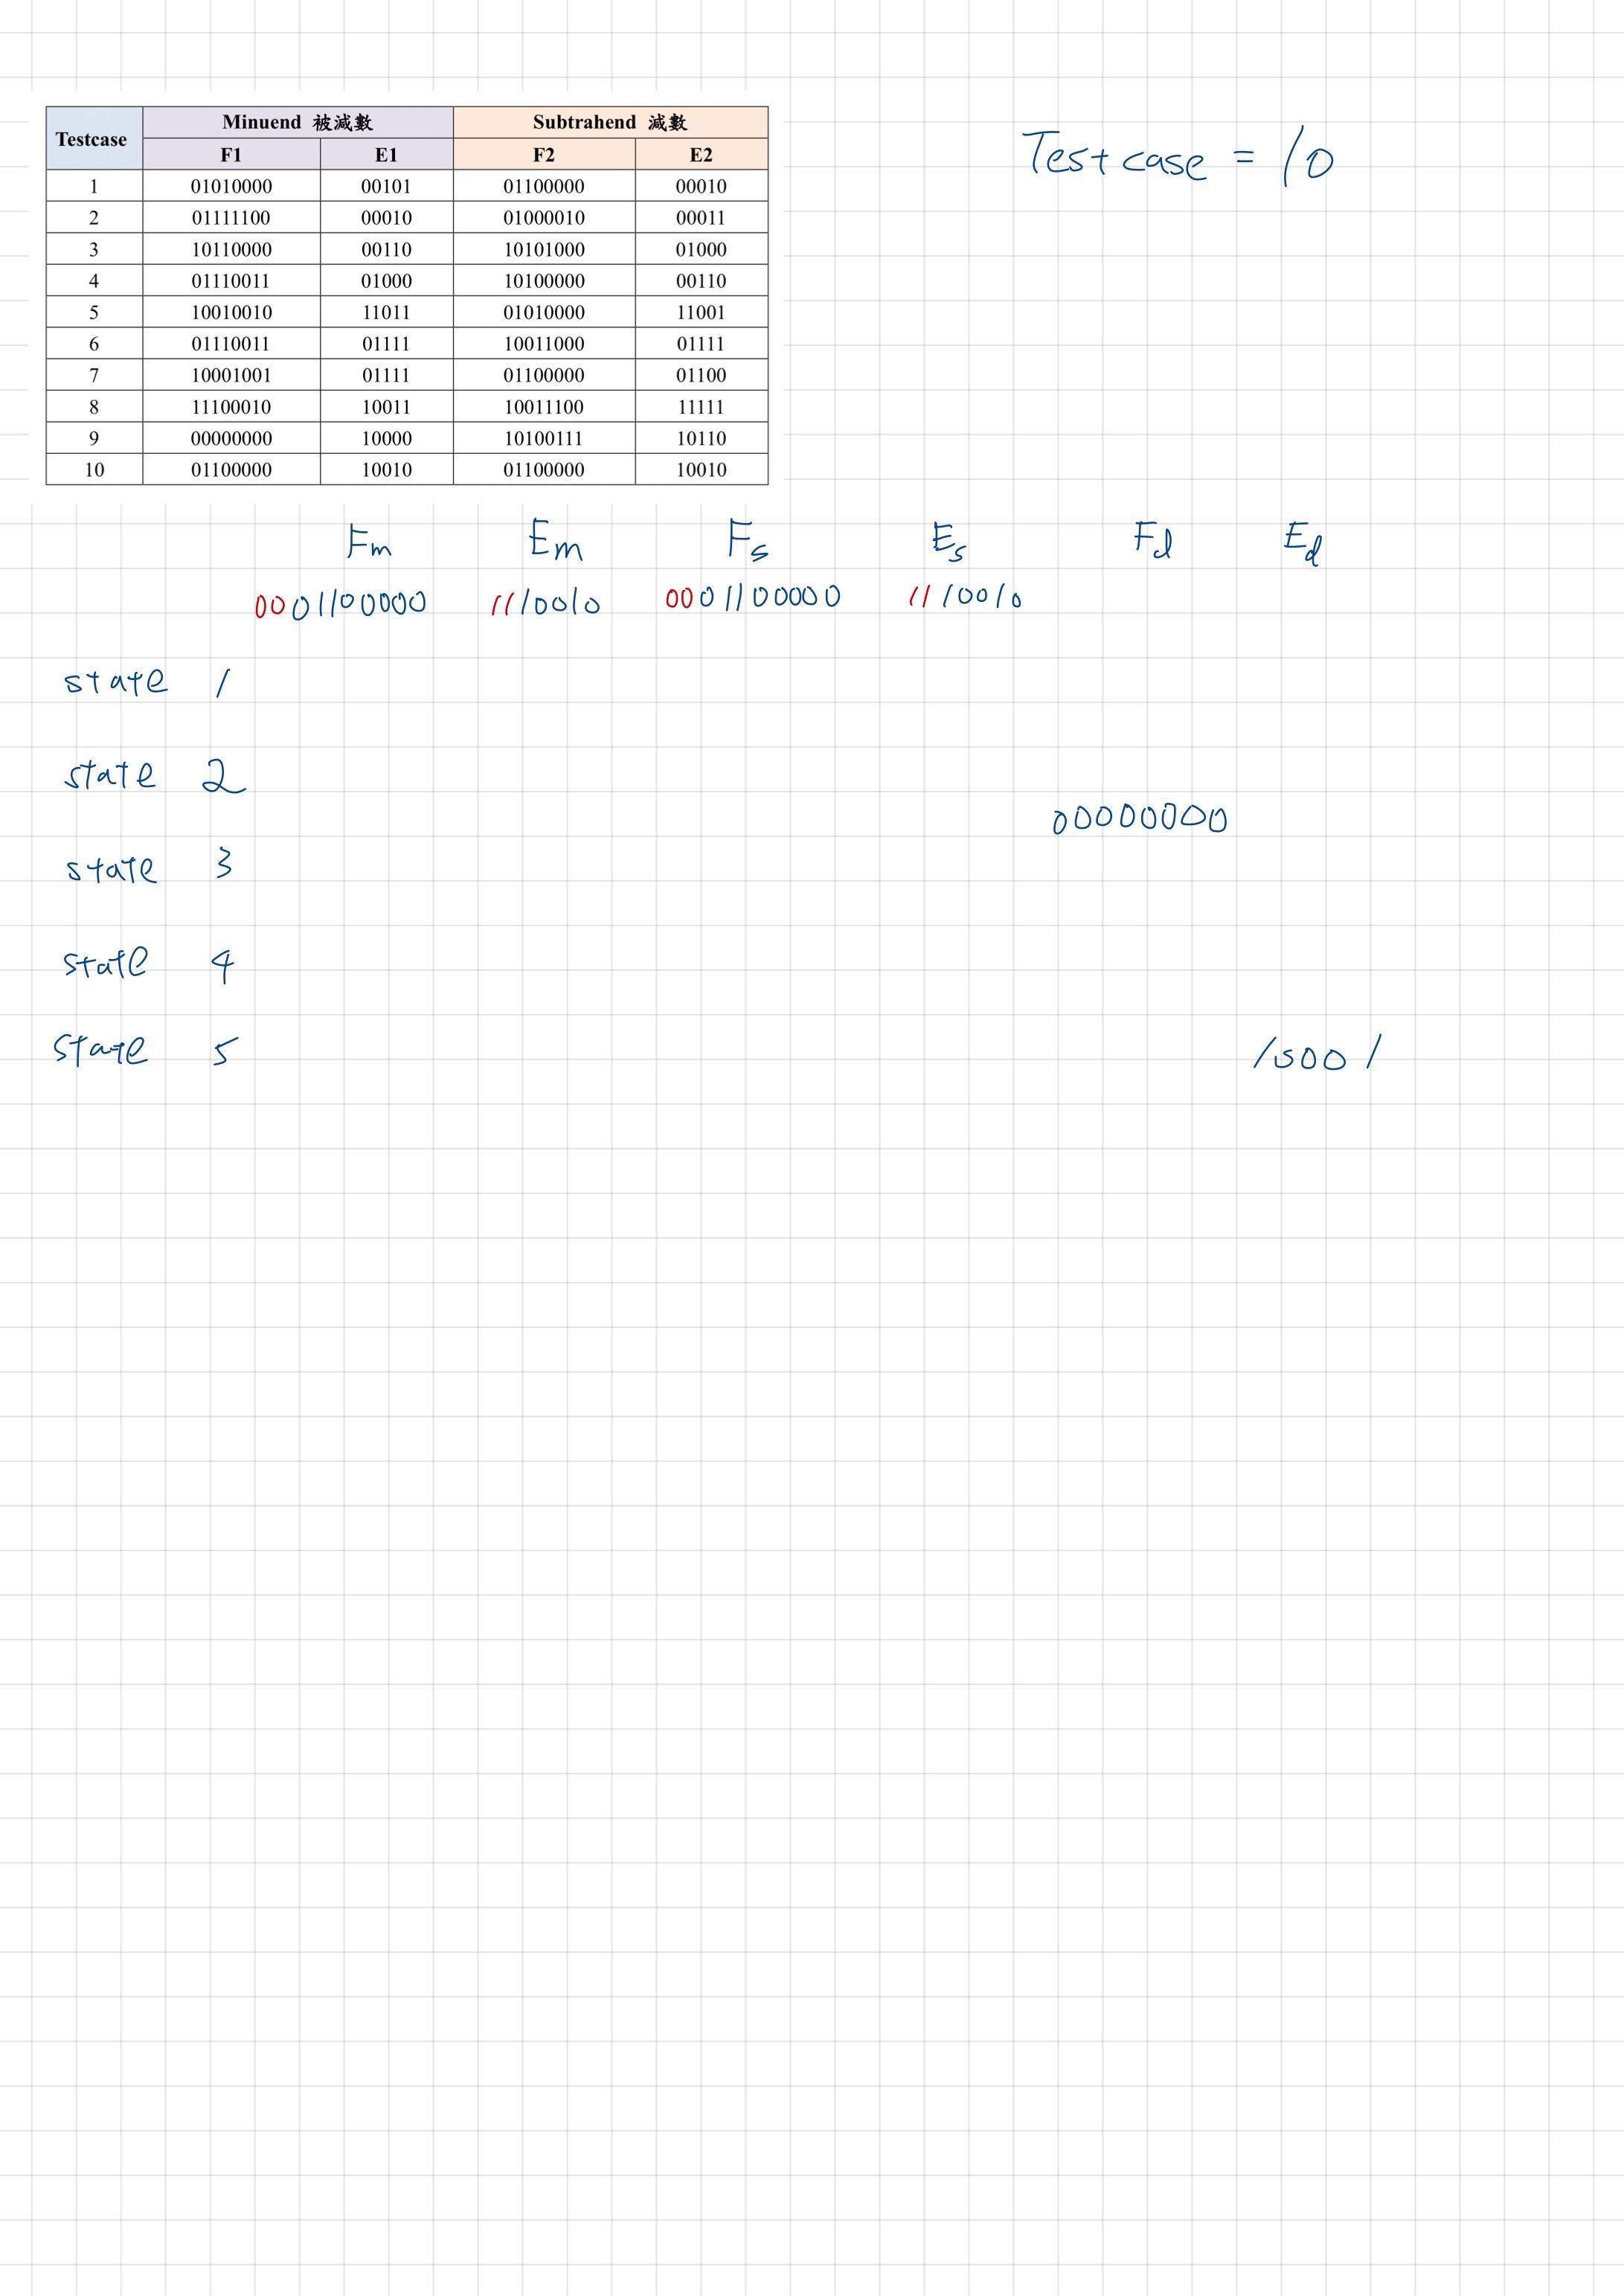 Testcase Minuend 被減數 Subtrahend 減數
F1 E1 F2 E2
1 01010000 00101 01100000 00010
2 01111100 00010 01000010 00011
3 10110000 00110 10101000 01000
4 01110011 01000 10100000 00110
5 10010010 11011 01010000 11001
6 01110011 01111 10011000 01111
7 10001001 01111 01100000 01100
8 11100010 10011 10011100 11111
9 00000000 10000 10100111 10110
10 01100000 10010 01100000 10010
Testcase = 10
Fm Em Fs Es Fd Ed
0001100000 1110010 0001100000 1110010
state 1
state 2
00000000
state 3
state 4
state 5 10001